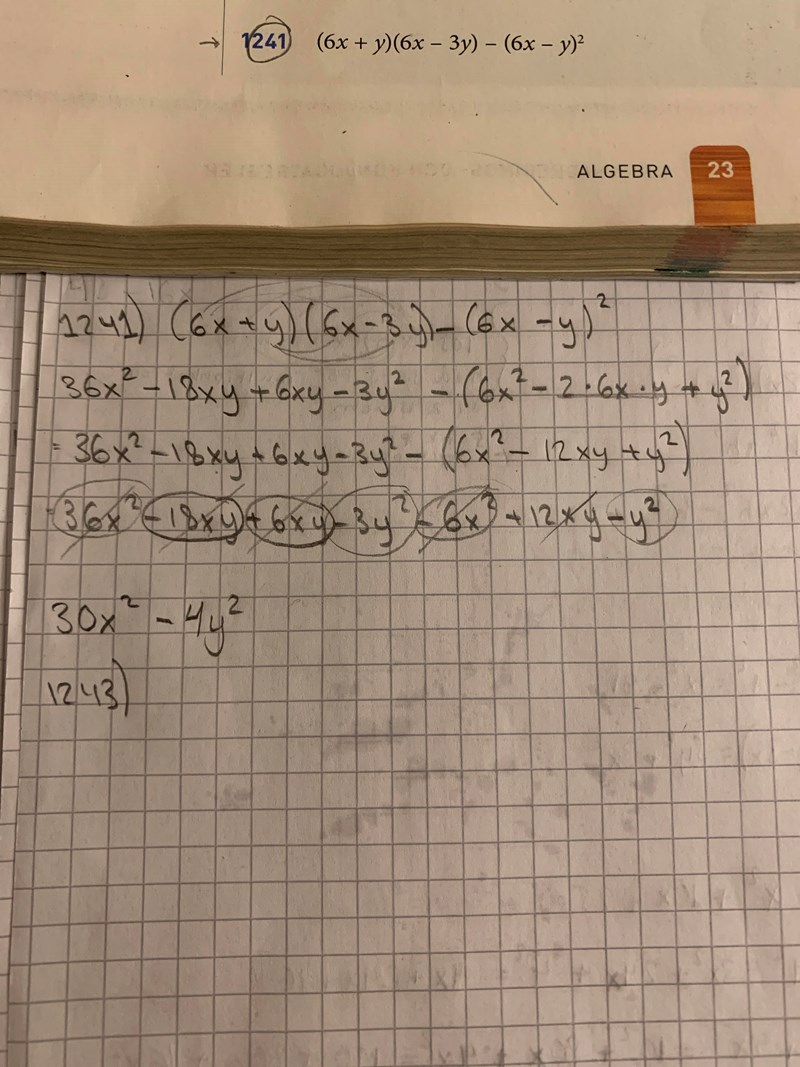 → 1241) (6x + y)(6x – 3y) – (6x – y)²
ALGEBRA 23
1241) (6x + y)(6x - 3y) - (6x - y)²
36x² - 18xy + 6xy - 3y² - (6x² - 2·6x·y + y²)
= 36x² - 18xy + 6xy - 3y² - (6x² - 12xy + y²)
= 36x² - 18xy + 6xy - 3y² - 6x² + 12xy - y²
30x² - 4y²
1243)